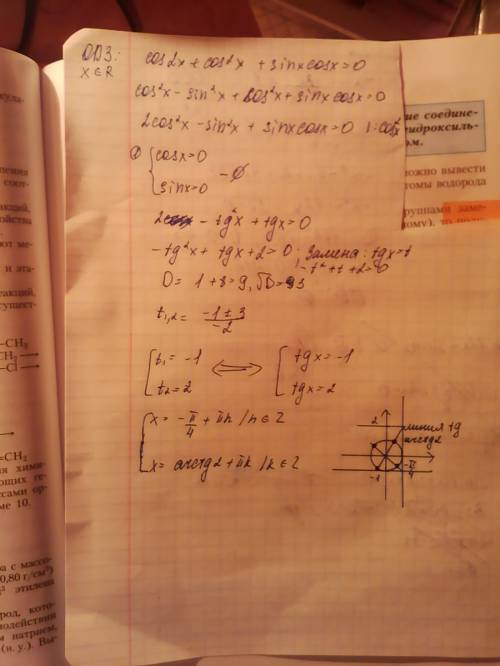 ОДЗ:
x ∈ R
cos2x + cos²x + sinxcosx=0
cos²x - sin²x + cos²x + sinx cosx=0
2cos²x - sin²x + sinxcosx=0 |:cos²x
① { cosx=0
sinx=0 - ∅
2 - tg²x + tgx=0
-tg²x + tgx+2=0; Замена: tgx=t
-t²+t+2=0
D= 1+8=9, √D=3
t₁,₂= (-1±3)/(-2)
[ t₁= -1 ⟺ [ tgx=-1
t₂=2 tgx=2
[ x= -π/4 + πn /n∈Z
x= arctg2+πk /k∈Z
2 линия tg
arctg2
-1 -π/4
кула-
соот-
ойства
ют ме-
и эта-
акций,
сущест-
–CH₃
CH₂
–Cl
=CH₂
ия хими-
ующих ре-
ссами ор-
ме 10.
ра с массо-
0,80 г/см³)
этилена
род, кото-
модействии
м натрием,
(н. у.). Вы-
ие соедине-
гидроксиль-
ом.
ожно вывести
томы водорода
группами заме-